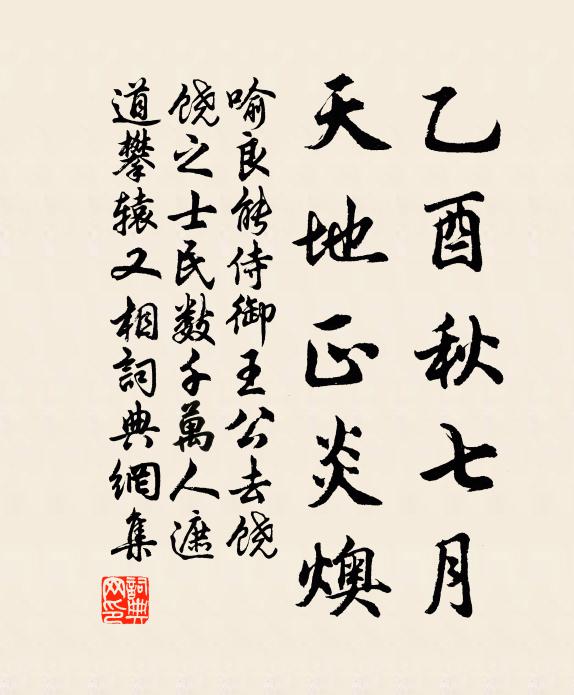 乙酉秋七月
天地正炎燠
喻良能侍御王公去饶
饶之士民数千萬人遮
道攀辕又相詞典網集
詞典網印